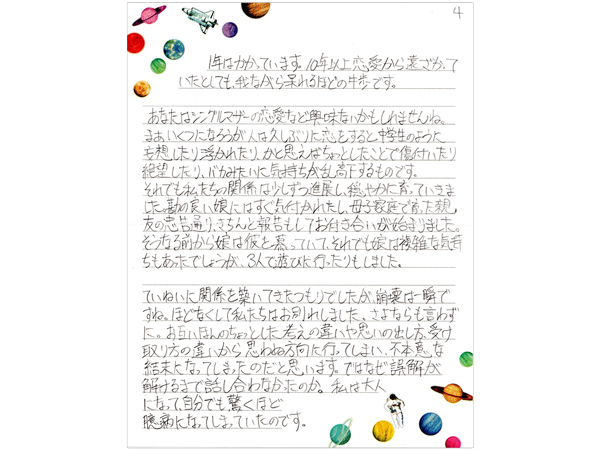 4
1年はかかっています。10年以上恋愛から遠ざかって
いたとしても、我ながら呆れるほどの牛歩です。
あなたはシングルマザーの恋愛など興味ないかもしれませんね。
まあいくつになろうが人は久しぶりに恋をすると、中学生のように
妄想したり浮かれたり、かと思えばちょっとしたことで傷付いたり
絶望したり、バカみたいに気持ちが乱高下するものです。
それでも私たちの関係は少しずつ進展し、穏やかに育っていきま
した。勘の良い娘にはすぐ気付かれたし、母子家庭で育った親
友の忠告通り、きちんと報告もしてお付き合いが始まりました。
そうなる前から娘は彼を慕っていて、それでも娘は複雑な気持
ちもあったでしょうが、3人で遊びに行ったりもしました。
ていねいに関係を築いてきたつもりでしたが、崩壊は一瞬で
すね。ほどなくして私たちはお別れしました、さよならも言わず
に。お互いほんのちょっとした考えの違いや思いの出し方、受け
取り方の違いから思わぬ方向に行ってしまい、不本意な
結末になってしまったのだと思います。ではなぜ誤解が
解けるまで話し合わなかったのか。私は大人
になって、自分でも驚くほど
臆病になってしまっていたのです。